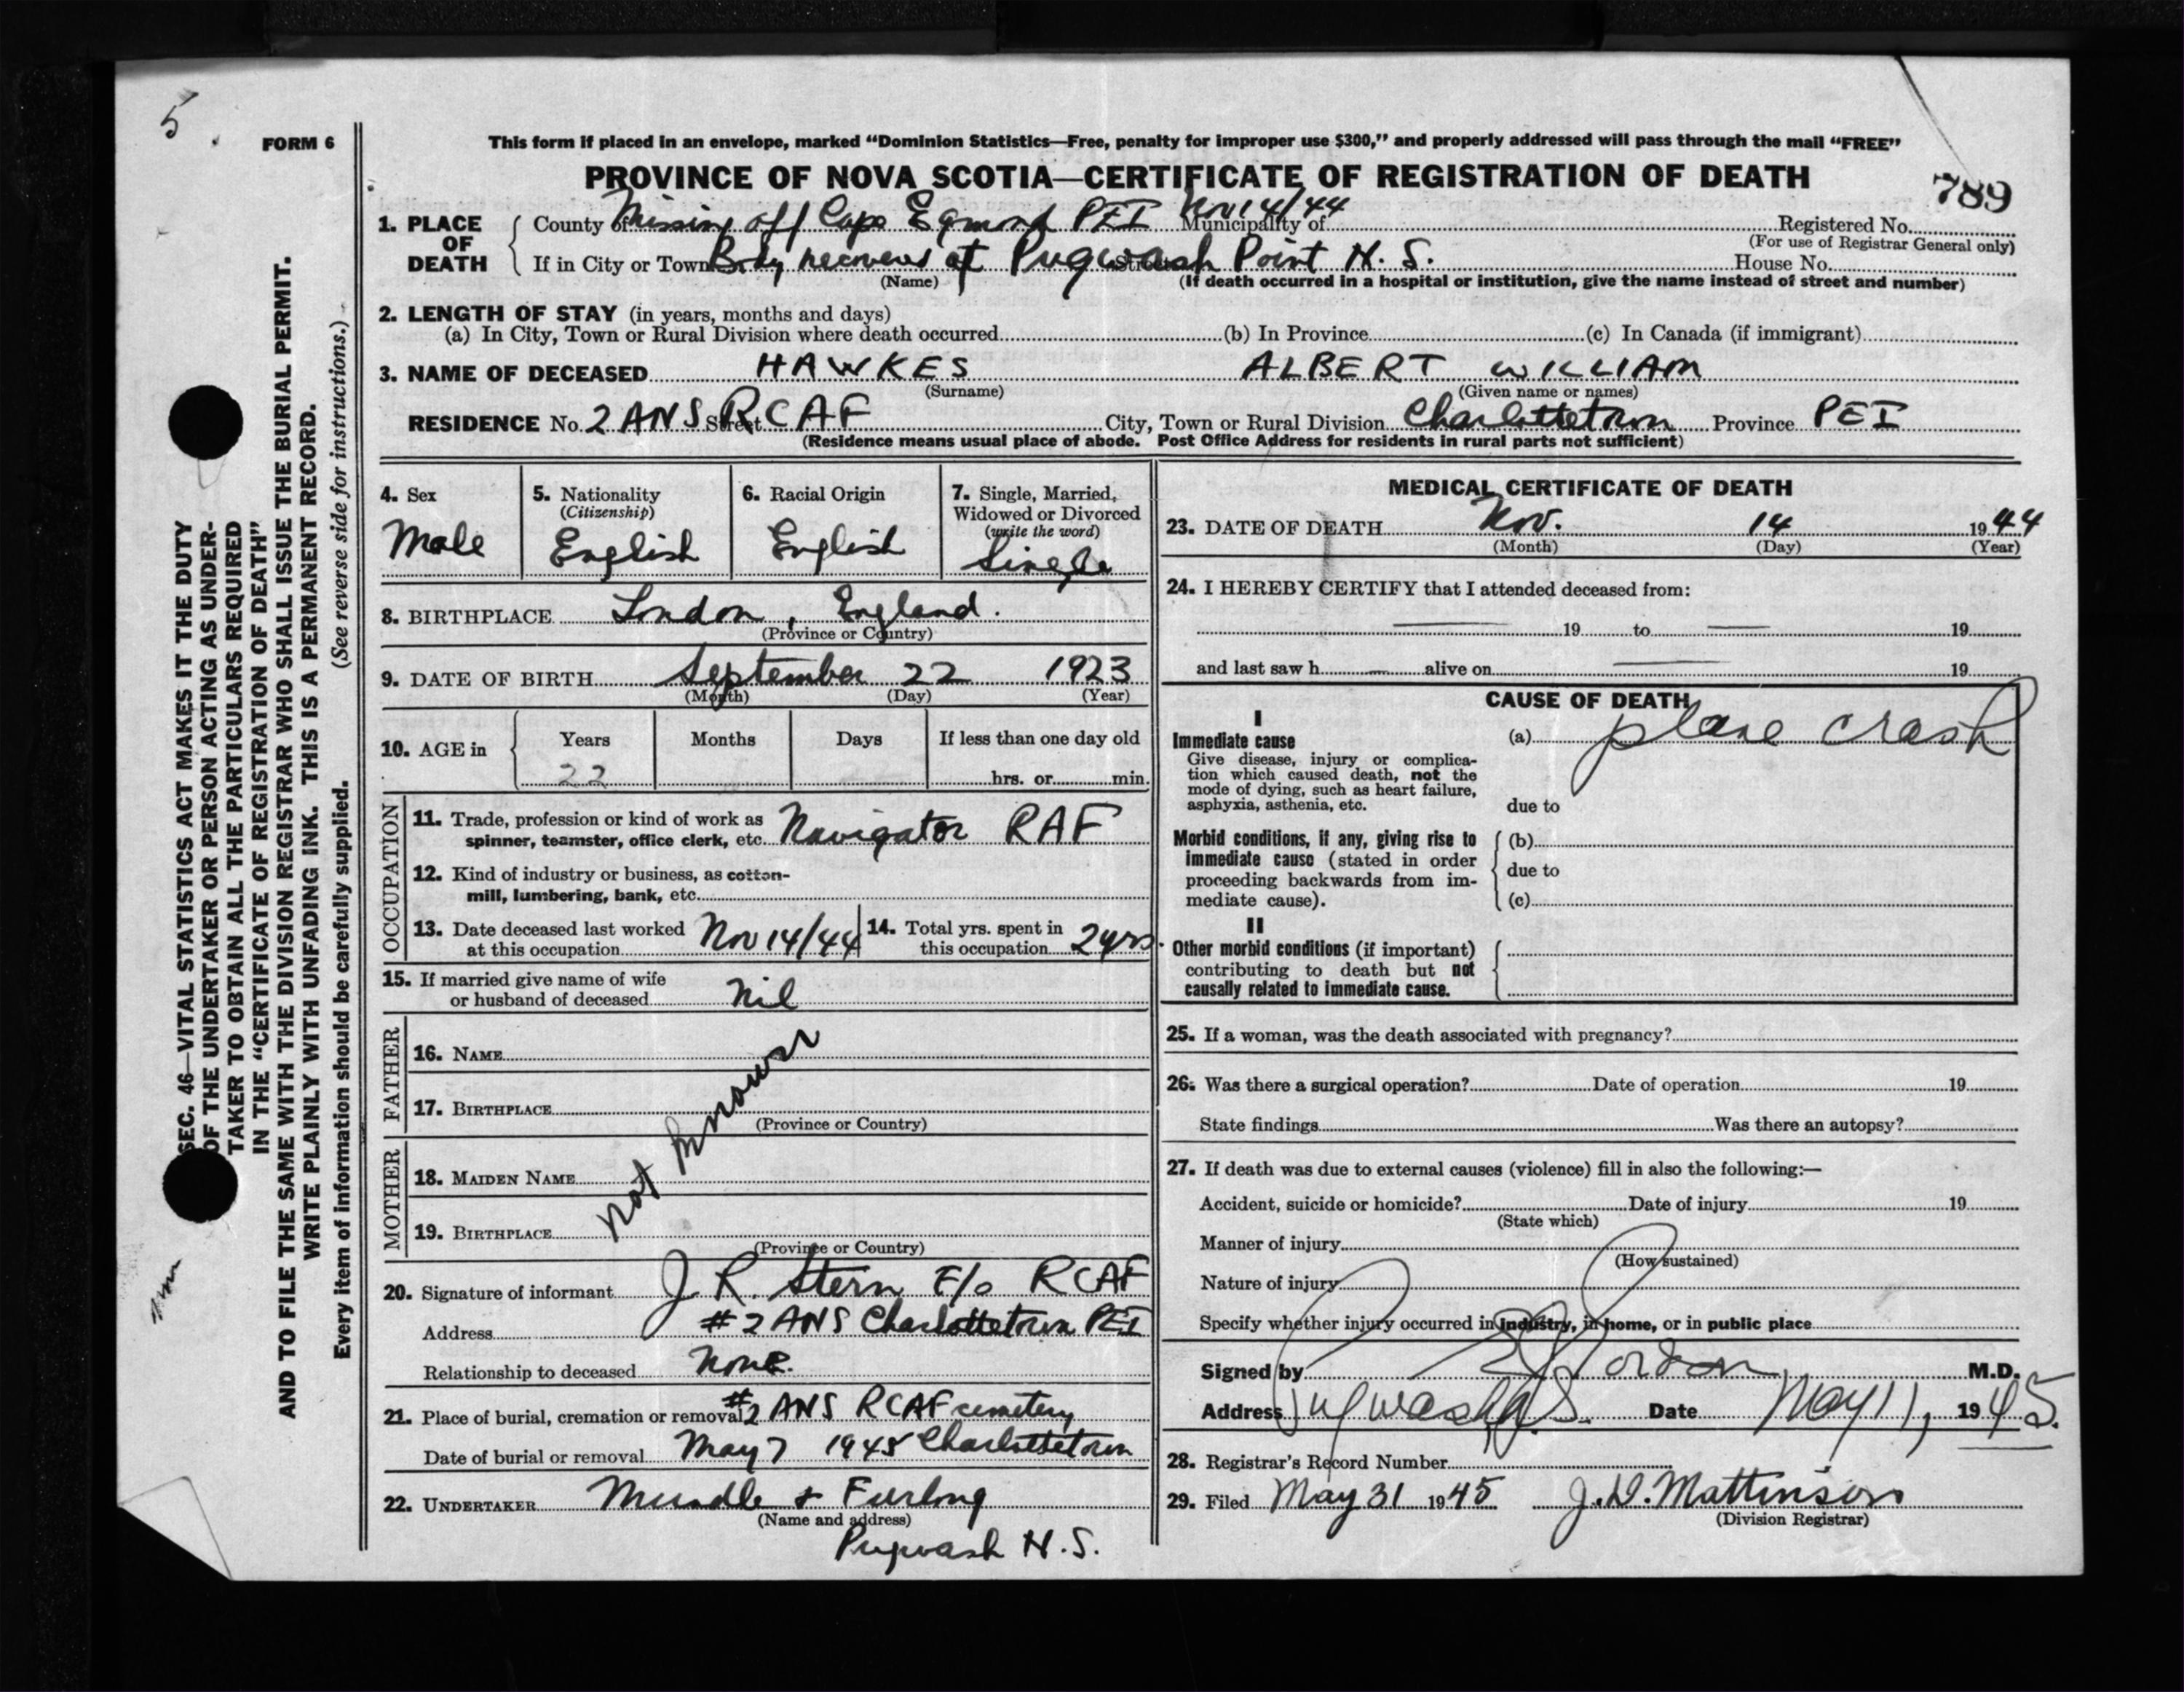 5
FORM 6
This form if placed in an envelope, marked “Dominion Statistics—Free, penalty for improper use $300,” and properly addressed will pass through the mail “FREE”
PROVINCE OF NOVA SCOTIA—CERTIFICATE OF REGISTRATION OF DEATH
789
1. PLACE OF DEATH
County of Missing off Cape Egmond PEI Nov 14/44 Municipality of
Registered No.
(For use of Registrar General only)
If in City or Town Body recovered at Pugwash Point N. S. Street House No.
(Name) (If death occurred in a hospital or institution, give the name instead of street and number)
2. LENGTH OF STAY (in years, months and days)
(a) In City, Town or Rural Division where death occurred (b) In Province (c) In Canada (if immigrant)
3. NAME OF DECEASED HAWKES ALBERT WILLIAM
(Surname) (Given name or names)
RESIDENCE No. 2 ANS Street RCAF City, Town or Rural Division Charlottetown Province PEI
(Residence means usual place of abode. Post Office Address for residents in rural parts not sufficient)
4. Sex
Male
5. Nationality
(Citizenship)
English
6. Racial Origin
English
7. Single, Married,
Widowed or Divorced
(write the word)
Single
8. BIRTHPLACE London, England.
(Province or Country)
9. DATE OF BIRTH September 22 1923
(Month) (Day) (Year)
10. AGE in Years Months Days If less than one day old
22 hrs. or min.
OCCUPATION
11. Trade, profession or kind of work as
spinner, teamster, office clerk, etc. Navigator RAF
12. Kind of industry or business, as cotton-
mill, lumbering, bank, etc.
13. Date deceased last worked
at this occupation Nov 14/44
14. Total yrs. spent in
this occupation 2 yrs.
15. If married give name of wife
or husband of deceased Nil
FATHER
16. NAME
17. BIRTHPLACE
(Province or Country)
Not known
MOTHER
18. MAIDEN NAME
19. BIRTHPLACE
(Province or Country)
20. Signature of informant J. R. Stern F/o RCAF
Address #2 ANS Charlottetown PEI
Relationship to deceased None.
21. Place of burial, cremation or removal #2 ANS RCAF cemetery
Date of burial or removal May 7 1945 Charlottetown
22. UNDERTAKER Mundle & Furlong
(Name and address)
Pugwash N.S.
MEDICAL CERTIFICATE OF DEATH
23. DATE OF DEATH Nov. 14 1944
(Month) (Day) (Year)
24. I HEREBY CERTIFY that I attended deceased from:
— 19 to — 19
and last saw h — alive on — 19
CAUSE OF DEATH
I
Immediate cause
Give disease, injury or complica-
tion which caused death, not the
mode of dying, such as heart failure,
asphyxia, asthenia, etc.
(a) plane crash
due to
Morbid conditions, if any, giving rise to
immediate cause (stated in order
proceeding backwards from im-
mediate cause).
(b)
due to
(c)
II
Other morbid conditions (if important)
contributing to death but not
causally related to immediate cause.
25. If a woman, was the death associated with pregnancy?
26. Was there a surgical operation? Date of operation 19
State findings Was there an autopsy?
27. If death was due to external causes (violence) fill in also the following:—
Accident, suicide or homicide? Date of injury 19
(State which)
Manner of injury
(How sustained)
Nature of injury
Specify whether injury occurred in industry, in home, or in public place
Signed by M.D.
Address Pugwash N.S. Date May 11, 1945.
28. Registrar's Record Number
29. Filed May 31 1945 J. D. Mattinson
(Division Registrar)
SEC. 46—VITAL STATISTICS ACT MAKES IT THE DUTY
OF THE UNDERTAKER OR PERSON ACTING AS UNDER-
TAKER TO OBTAIN ALL THE PARTICULARS REQUIRED
IN THE “CERTIFICATE OF REGISTRATION OF DEATH”
AND TO FILE THE SAME WITH THE DIVISION REGISTRAR WHO SHALL ISSUE THE BURIAL PERMIT.
WRITE PLAINLY WITH UNFADING INK. THIS IS A PERMANENT RECORD.
Every item of information should be carefully supplied. (See reverse side for instructions.)